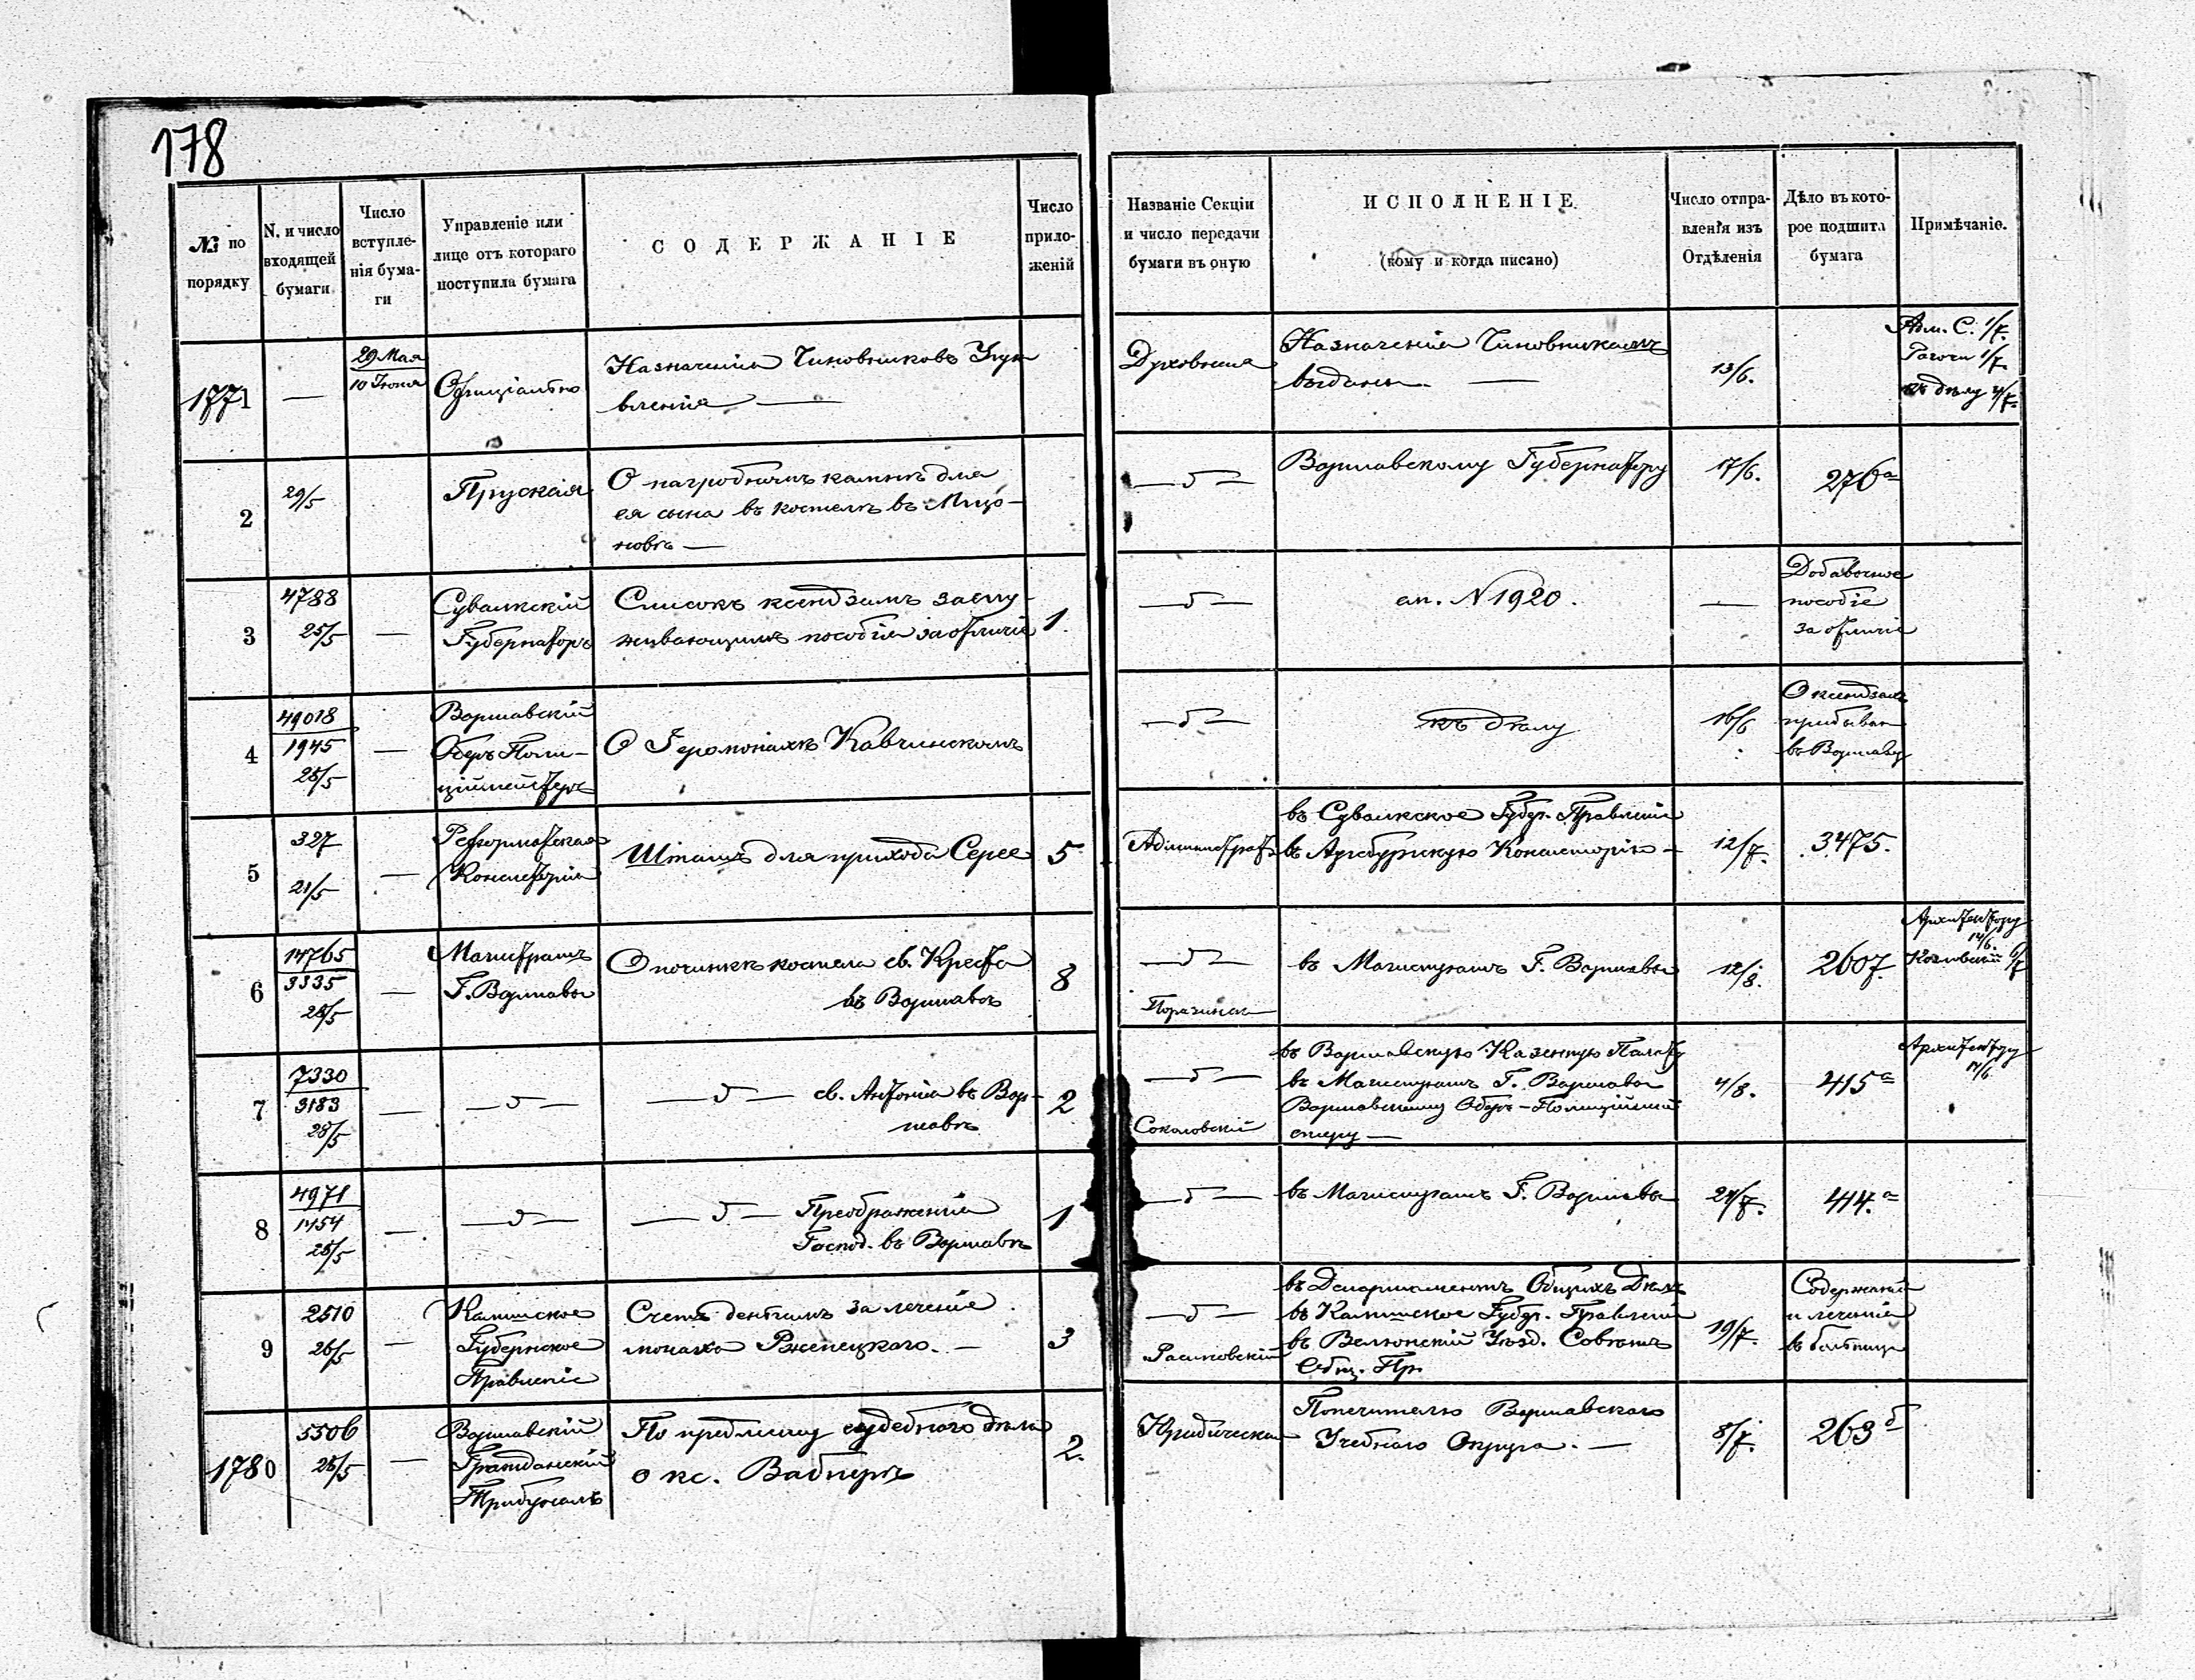 178
№ по порядку
N. и число входящей бумаги
Число вступле-нія бума-ги
Управленіе или лице отъ котораго поступила бумага
СОДЕРЖАНІЕ
Число прило-женій
Названіе Секціи и число передачи бумаги въ оную
ИСПОЛНЕНІЕ
(кому и когда писано)
Число отпра-вленія изъ Отдѣленія
Дѣло въ кото-рое подшита бумага
Примѣчаніе.
1771 — 29 Мая / 10 Іюня Офиціально
Назначенія Чиновниковъ Упра
вленія —
Духовная
Назначенія Чиновникамъ
выданы. —
13/6.
Адм. С. 1/7.
1/7.
къ дѣлу 4/7.
2 29/5 Пруская
О нагробномъ камнѣ для
ея сына въ костелѣ въ Мщо-
новѣ —
— д —
Варшавскому Губернатору
17/6.
276а
3 4788 25/5 —
Сувалкскій
Губернаторъ
Списокъ ксендзамъ заслу-
живающимъ пособія за отличіе
1.
— д —
сл. N 1920.
—
Добавочное
пособіе
за отличіе
4 49018 / 1945 25/5 —
Варшавскій
Оберъ Поли-
ціймейстеръ
О Іеромонахѣ Кавчинскомъ
— д —
къ дѣлу
16/6
О ксендзахъ
прибыв
въ Варшаву
5 327 21/5 —
Реформатская
Консисторія
Штатъ для прихода Серее
5
Администрат
въ Сувалкское Губер. Правленіе
въ Аугсбургскую Консисторію —
12/7.
3475.
6 14765 / 3335 28/5 —
Магистратъ
Г. Варшавы
О починкѣ костела св. Креста
въ Варшавѣ
8
— д —
въ Магистратъ Г. Варшавы
12/8.
2607.
Архитектору
14/6.
Козловскій 6/7
7 7330 / 3183 28/5 —
— д —
— д — св. Антонія въ Вар-
шавѣ
2
— д —
Соколовскій
въ Варшавскую Казенную Палату
въ Магистратъ Г. Варшавы
Варшавскому Оберъ-Полиційме
стеру —
4/8.
415а
Архитектору
14/6
8 4971 / 1454 28/5 —
— д —
— д — Преображенія
Господ. въ Варшавѣ
1
— д —
въ Магистратъ Г. Варшавы
24/7.
414.а
9 2510 26/5 —
Калишское
Губернское
Правленіе
Счетъ деньгамъ за леченіе
монаха Ржепецкаго. —
3
— д —
въ Департаментъ Общихъ Дѣлъ
въ Калишское Губер. Правленіе
въ Велюнскій Уѣзд. Совѣтъ
Общ. Пр.
19/7.
Содержаніе
и леченіе
въ больницѣ
1780 5506 28/5 —
Варшавскій
Гражданскій
Трибуналъ
По предмету судебнаго дѣла
о кс. Вагнерѣ
2.
Юридическая
Попечителю Варшавскаго
Учебнаго Округа. —
8/7.
263б